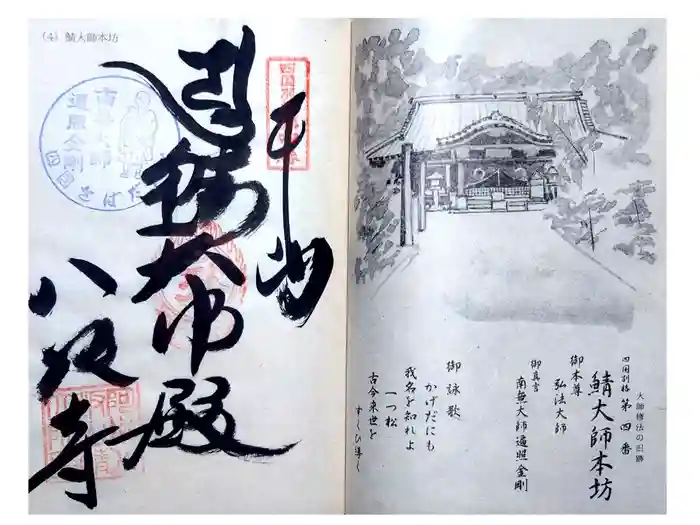 (4) 鯖大師本坊
南無大師
遍照金剛
四国さばだ
奉
鯖大師殿
八坂寺
大師修法の旧跡
四国別格 第四番
鯖大師本坊
御本尊
弘法大師
御真言
南無大師遍照金剛
御詠歌
かげだにも
我名を知れよ
一つ松
古今来世を
すくひ導く